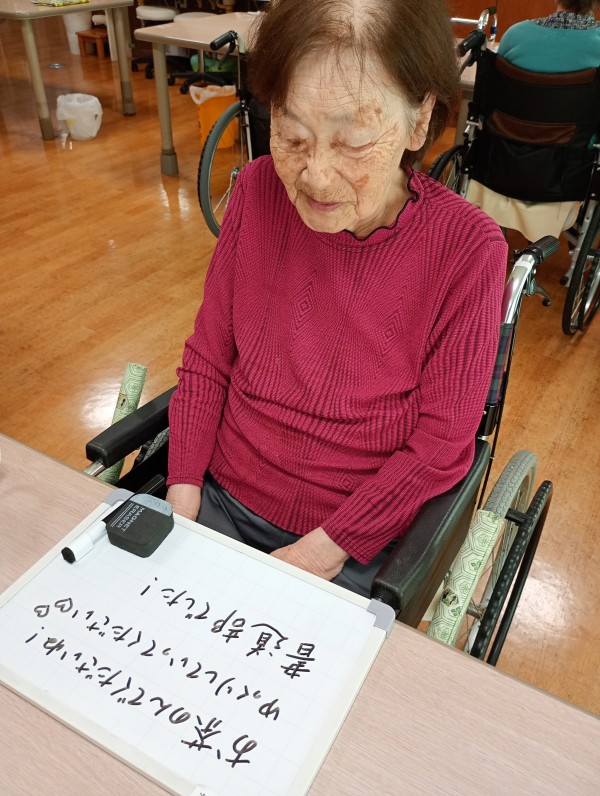 お茶のんでくださいね!
ゆっくりしていってください♡♡
書道部でした!
MAGNET
ERASER